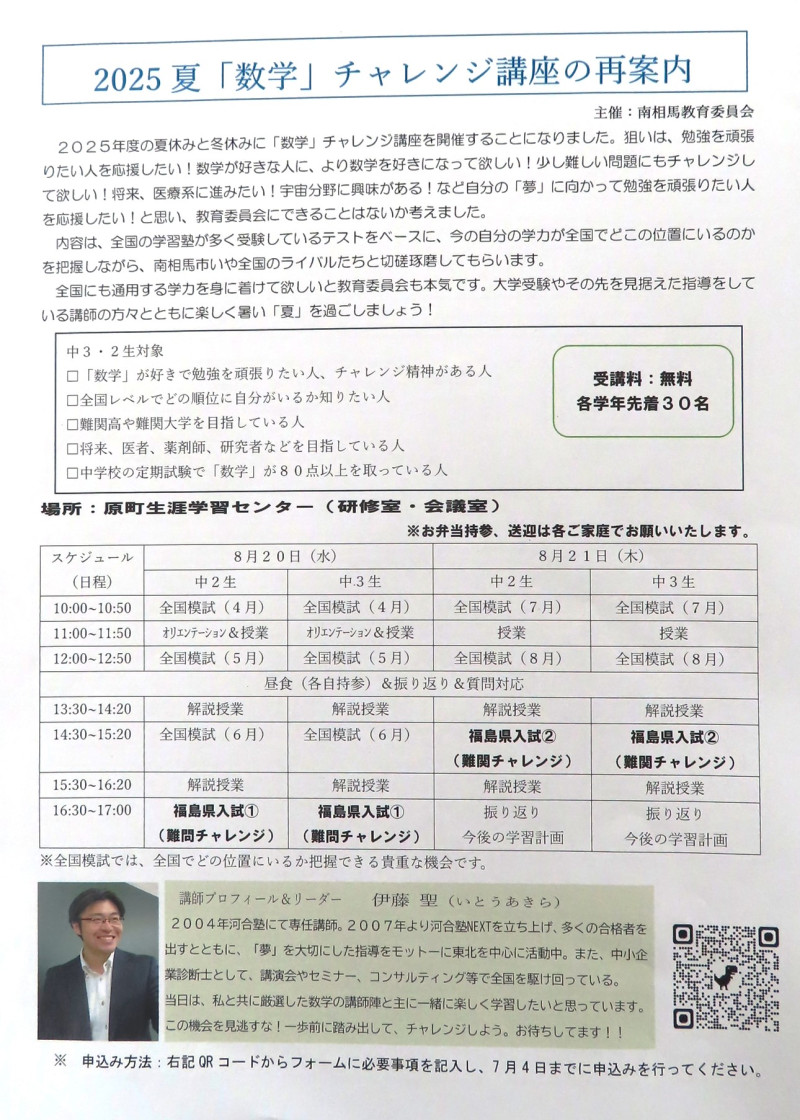 2025 夏「数学」チャレンジ講座の再案内
主催：南相馬教育委員会
２０２５年度の夏休みと冬休みに「数学」チャレンジ講座を開催することになりました。狙いは、勉強を頑張
りたい人を応援したい！数学が好きな人に、より数学を好きになって欲しい！少し難しい問題にもチャレンジし
て欲しい！将来、医療系に進みたい！宇宙分野に興味がある！など自分の「夢」に向かって勉強を頑張りたい人
を応援したい！と思い、教育委員会にできることはないか考えました。
内容は、全国の学習塾が多く受験しているテストをベースに、今の自分の学力が全国でどこの位置にいるのか
を把握しながら、南相馬市いや全国のライバルたちと切磋琢磨してもらいます。
全国にも通用する学力を身に着けて欲しいと教育委員会も本気です。大学受験やその先を見据えた指導をして
いる講師の方々とともに楽しく暑い「夏」を過ごしましょう！
中３・２生対象
□「数学」が好きで勉強を頑張りたい人、チャレンジ精神がある人
□全国レベルでどの順位に自分がいるか知りたい人
□難関高や難関大学を目指している人
□将来、医者、薬剤師、研究者などを目指している人
□中学校の定期試験で「数学」が８０点以上を取っている人
受講料：無料
各学年先着３０名
場所：原町生涯学習センター（研修室・会議室）
※お弁当持参、送迎は各ご家庭でお願いいたします。
スケジュール（日程） 8月20日（水） 8月21日（木）
中２生 中３生 中２生 中３生
10:00~10:50 全国模試（４月） 全国模試（４月） 全国模試（７月） 全国模試（７月）
11:00~11:50 ｵﾘｴﾝﾃｰｼｮﾝ＆授業 ｵﾘｴﾝﾃｰｼｮﾝ＆授業 授業 授業
12:00~12:50 全国模試（５月） 全国模試（５月） 全国模試（８月） 全国模試（８月）
昼食（各自持参）＆振り返り＆質問対応
13:30~14:20 解説授業 解説授業 解説授業 解説授業
14:30~15:20 全国模試（６月） 全国模試（６月） 福島県入試② 福島県入試②
（難関チャレンジ） （難関チャレンジ）
15:30~16:20 解説授業 解説授業 解説授業 解説授業
16:30~17:00 福島県入試① 福島県入試① 振り返り 振り返り
（難問チャレンジ） （難問チャレンジ） 今後の学習計画 今後の学習計画
※全国模試では、全国でどの位置にいるか把握できる貴重な機会です。
講師プロフィール＆リーダー 伊藤 聖（いとうあきら）
２００４年河合塾にて専任講師。２００７年より河合塾NEXTを立ち上げ、多くの合格者を
出すとともに、「夢」を大切にした指導をモットーに東北を中心に活動中。また、中小企
業診断士として、講演会やセミナー、コンサルティング等で全国を駆け回っている。
当日は、私と共に厳選した数学の講師陣と主に一緒に楽しく学習したいと思っています。
この機会を見逃すな！一歩前に踏み出して、チャレンジしよう。お待ちしてます！！
※ 申込み方法：右記QRコードからフォームに必要事項を記入し、7月4日までに申込みを行ってください。